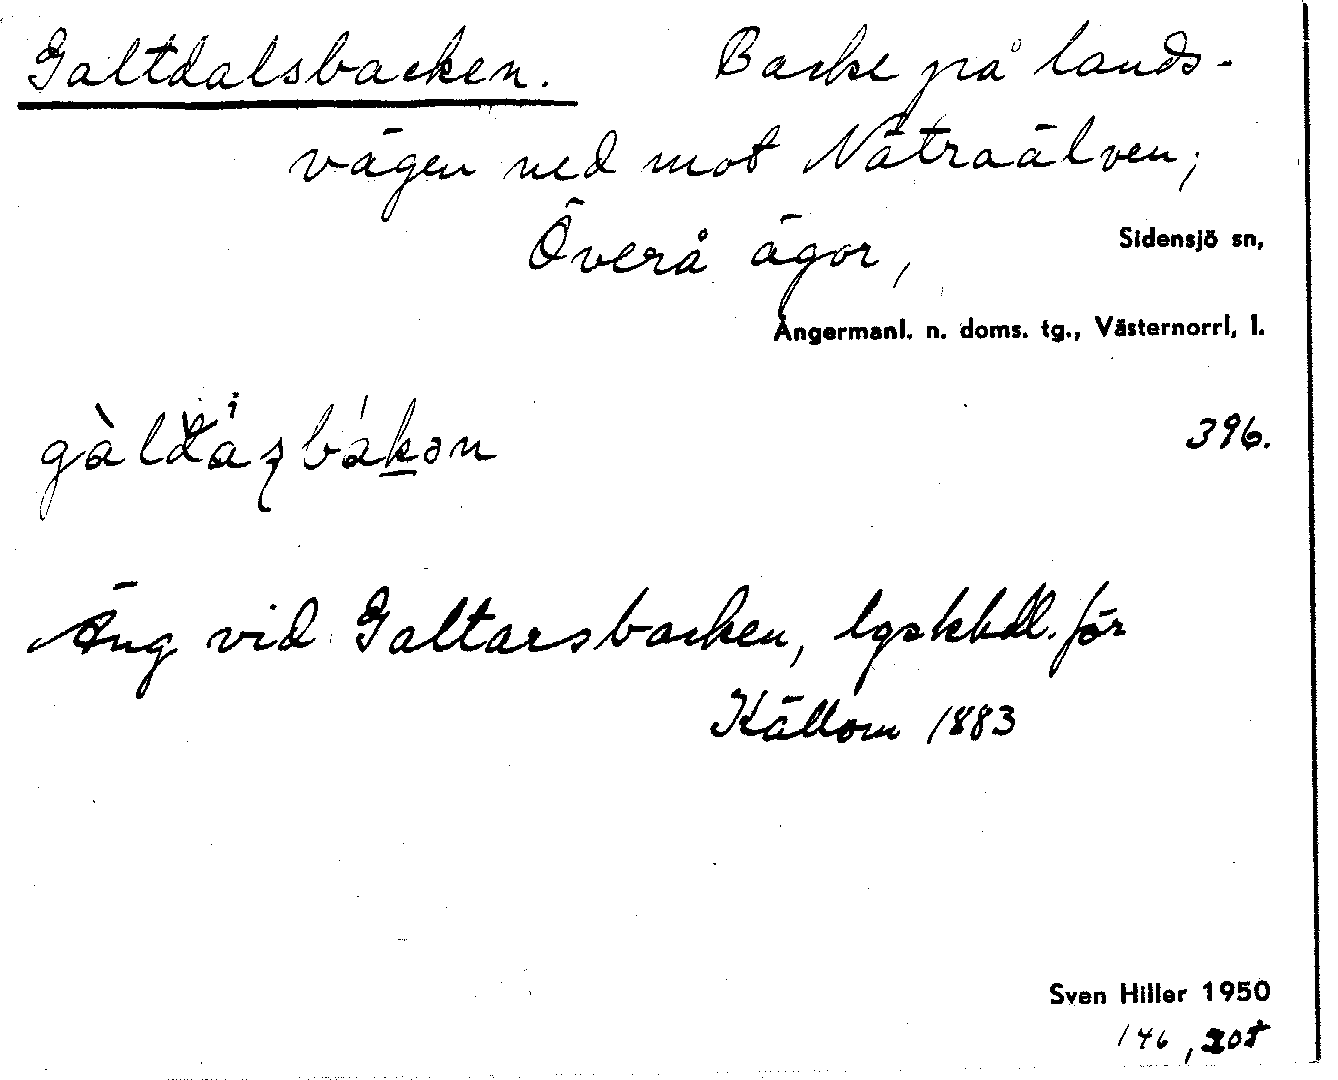 Galtdalsbacken. Backe på lands-
vägen ned mot Nätraälven;
Överå ägor,
Sidensjö sn,
Ångermanl. n. doms. tg., Västernorrl. l.
396.
Äng vid Galtarsbacken, lgskhdl. för
Källom 1883
Sven Hiller 1950
146,